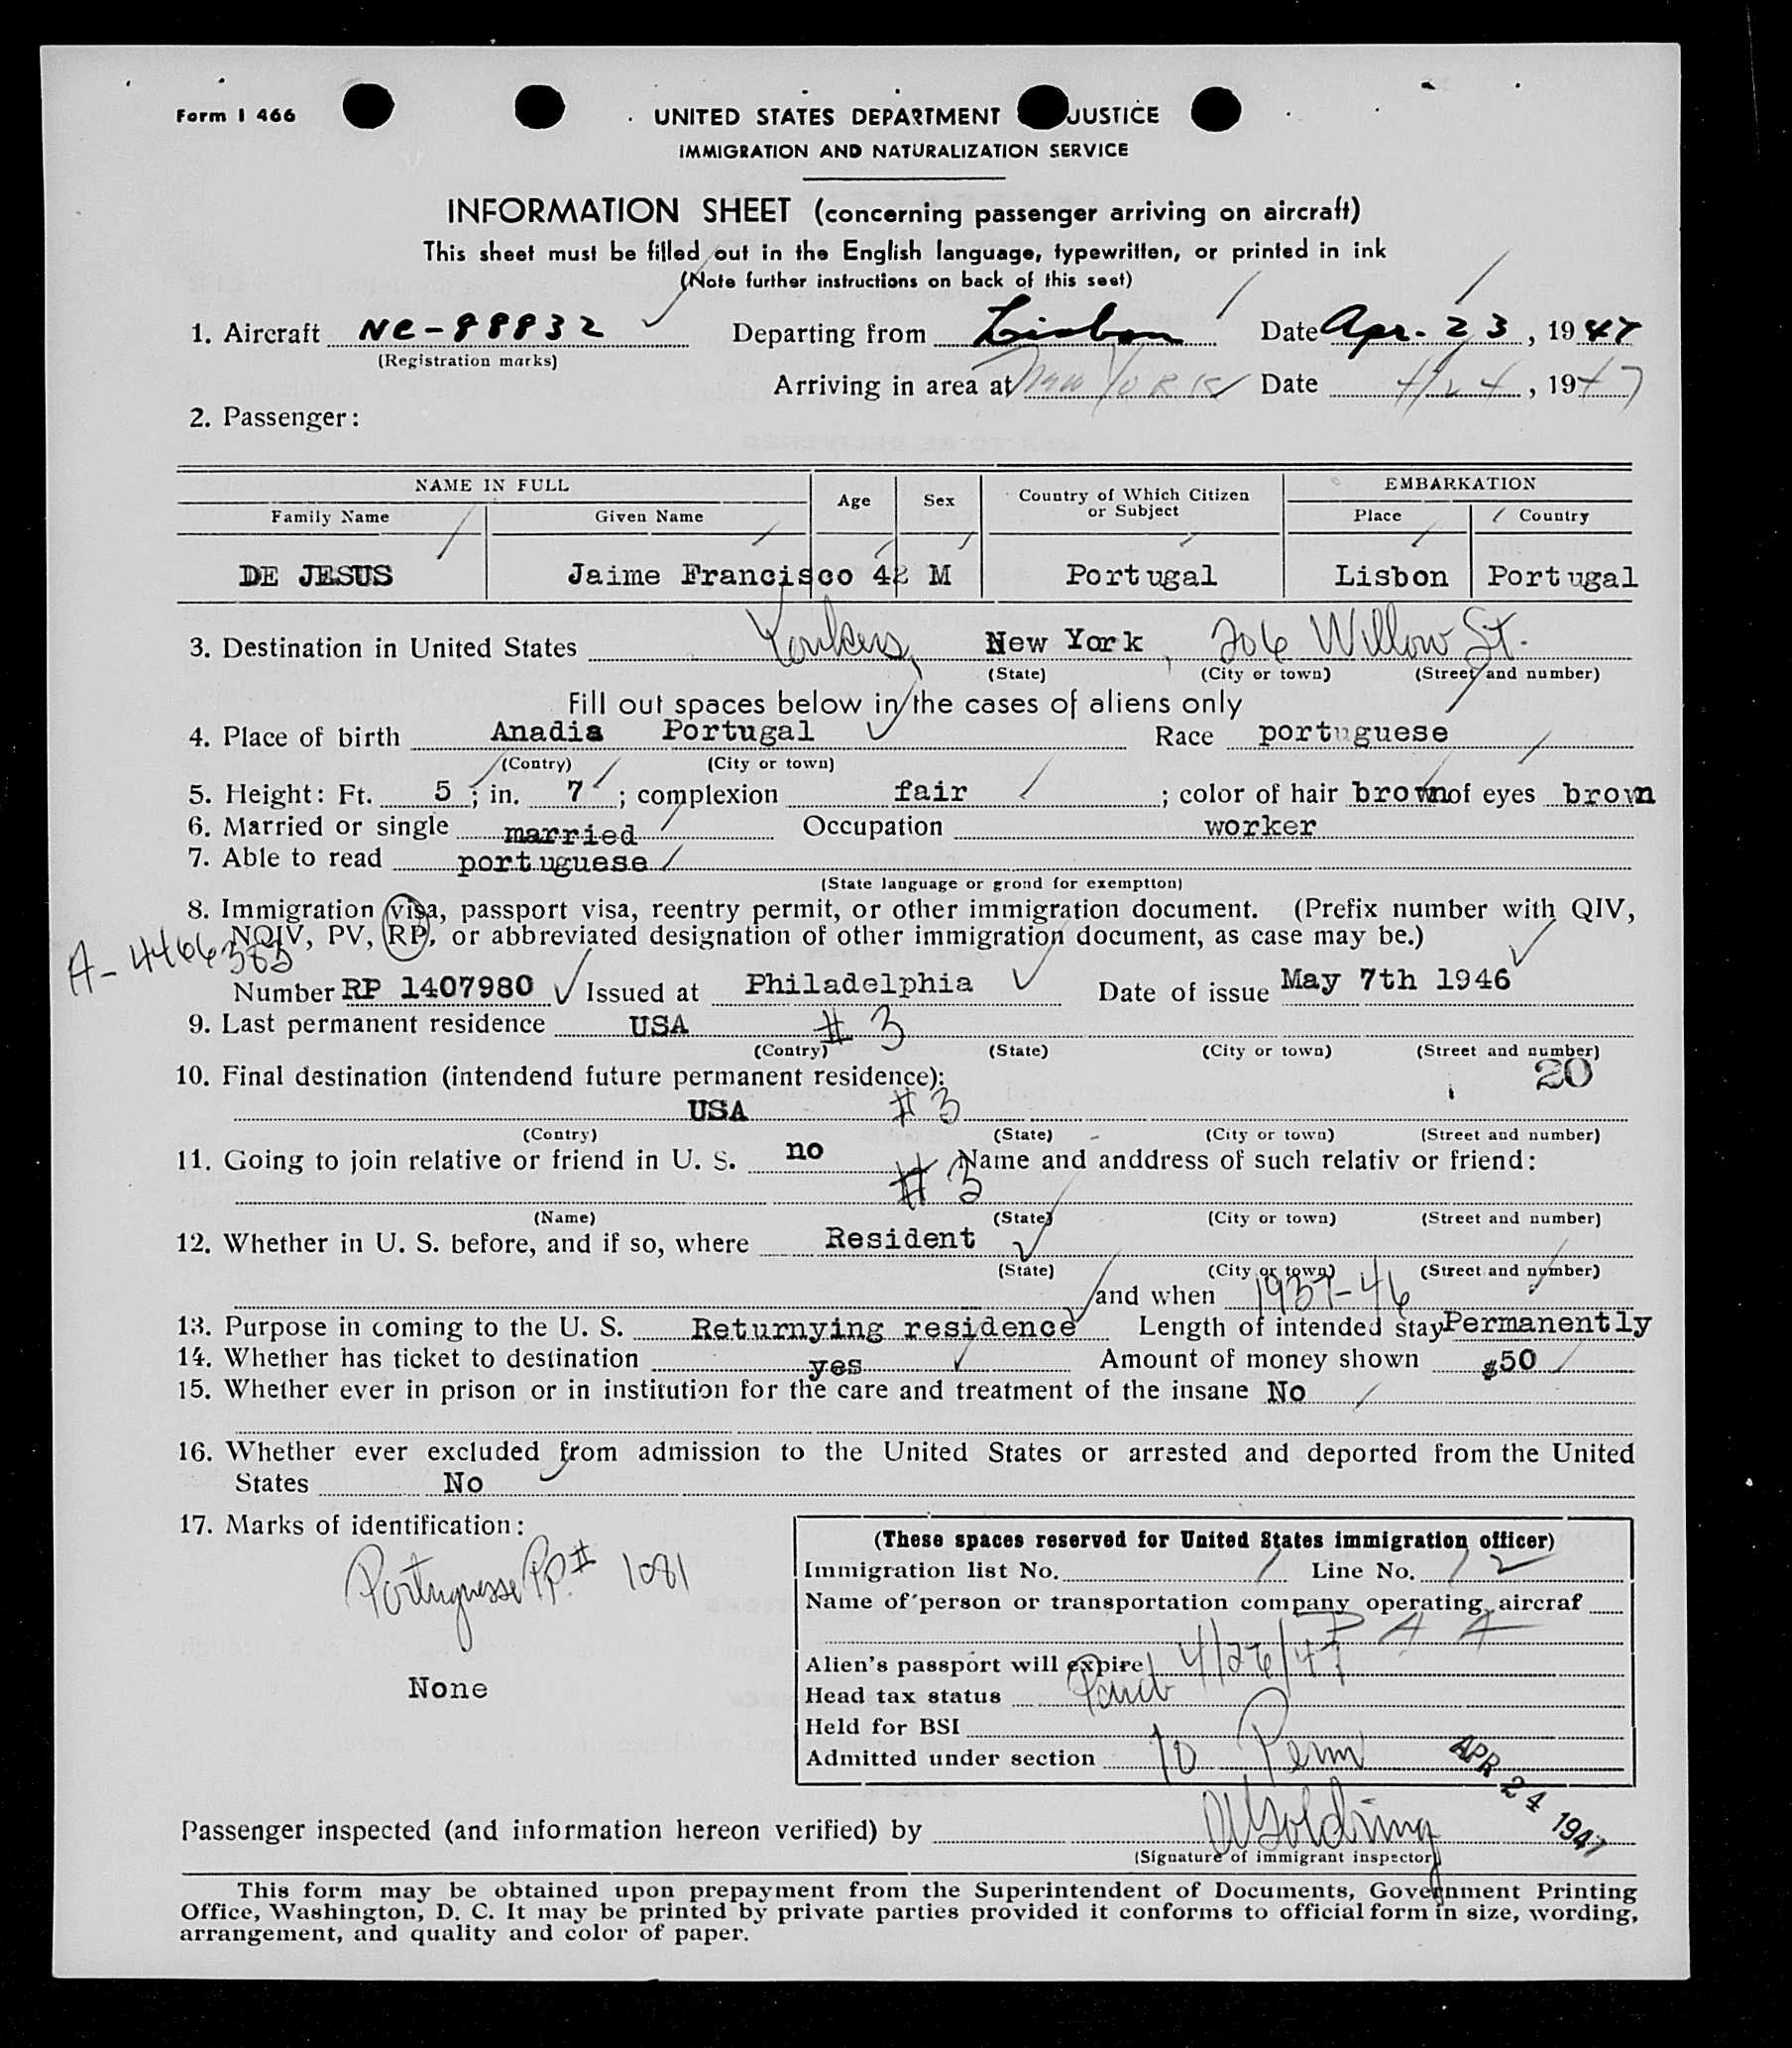 Form I 466
UNITED STATES DEPARTMENT JUSTICE
IMMIGRATION AND NATURALIZATION SERVICE
INFORMATION SHEET (concerning passenger arriving on aircraft)
This sheet must be filled out in the English language, typewritten, or printed in ink
(Note further instructions on back of this seet)
1. Aircraft NC-88832 Departing from Lisbon Date Apr. 23, 1947
(Registration marks)
Arriving in area at New York Date 4/24, 1947
2. Passenger:
NAME IN FULL Age Sex Country of Which Citizen or Subject EMBARKATION
Family Name Given Name Place Country
DE JESUS Jaime Francisco 42 M Portugal Lisbon Portugal
3. Destination in United States Yonkers, New York, 206 Willow St.
(State) (City or town) (Street and number)
Fill out spaces below in the cases of aliens only
4. Place of birth Anadia Portugal Race portuguese
(Contry) (City or town)
5. Height: Ft. 5; in. 7; complexion fair; color of hair brown of eyes brown
6. Married or single married Occupation worker
7. Able to read portuguese
(State language or grond for exemption)
8. Immigration visa, passport visa, reentry permit, or other immigration document. (Prefix number with QIV,
NQIV, PV, RP, or abbreviated designation of other immigration document, as case may be.)
A-4466383
Number RP 1407980 Issued at Philadelphia Date of issue May 7th 1946
9. Last permanent residence USA # 3
(Contry) (State) (City or town) (Street and number)
20
10. Final destination (intendend future permanent residence):
USA # 3
(Contry) (State) (City or town) (Street and number)
11. Going to join relative or friend in U. S. no Name and anddress of such relativ or friend:
# 3
(Name) (State) (City or town) (Street and number)
12. Whether in U. S. before, and if so, where Resident
(State) (City or town) (Street and number)
and when 1937-46
13. Purpose in coming to the U. S. Returnying residence Length of intended stay Permanently
14. Whether has ticket to destination yes Amount of money shown $50
15. Whether ever in prison or in institution for the care and treatment of the insane No
16. Whether ever excluded from admission to the United States or arrested and deported from the United
States No
17. Marks of identification:
Portuguesse Pp. # 1081
None
(These spaces reserved for United States immigration officer)
Immigration list No. 1 Line No. 12
Name of person or transportation company operating aircraf
P A A
Alien's passport will expire 4/26/47
Head tax status Paid
Held for BSI
Admitted under section 10 Perm
APR 24 1947
Passenger inspected (and information hereon verified) by Golding
(Signature of immigrant inspector)
This form may be obtained upon prepayment from the Superintendent of Documents, Government Printing
Office, Washington, D. C. It may be printed by private parties provided it conforms to official form in size, wording,
arrangement, and quality and color of paper.